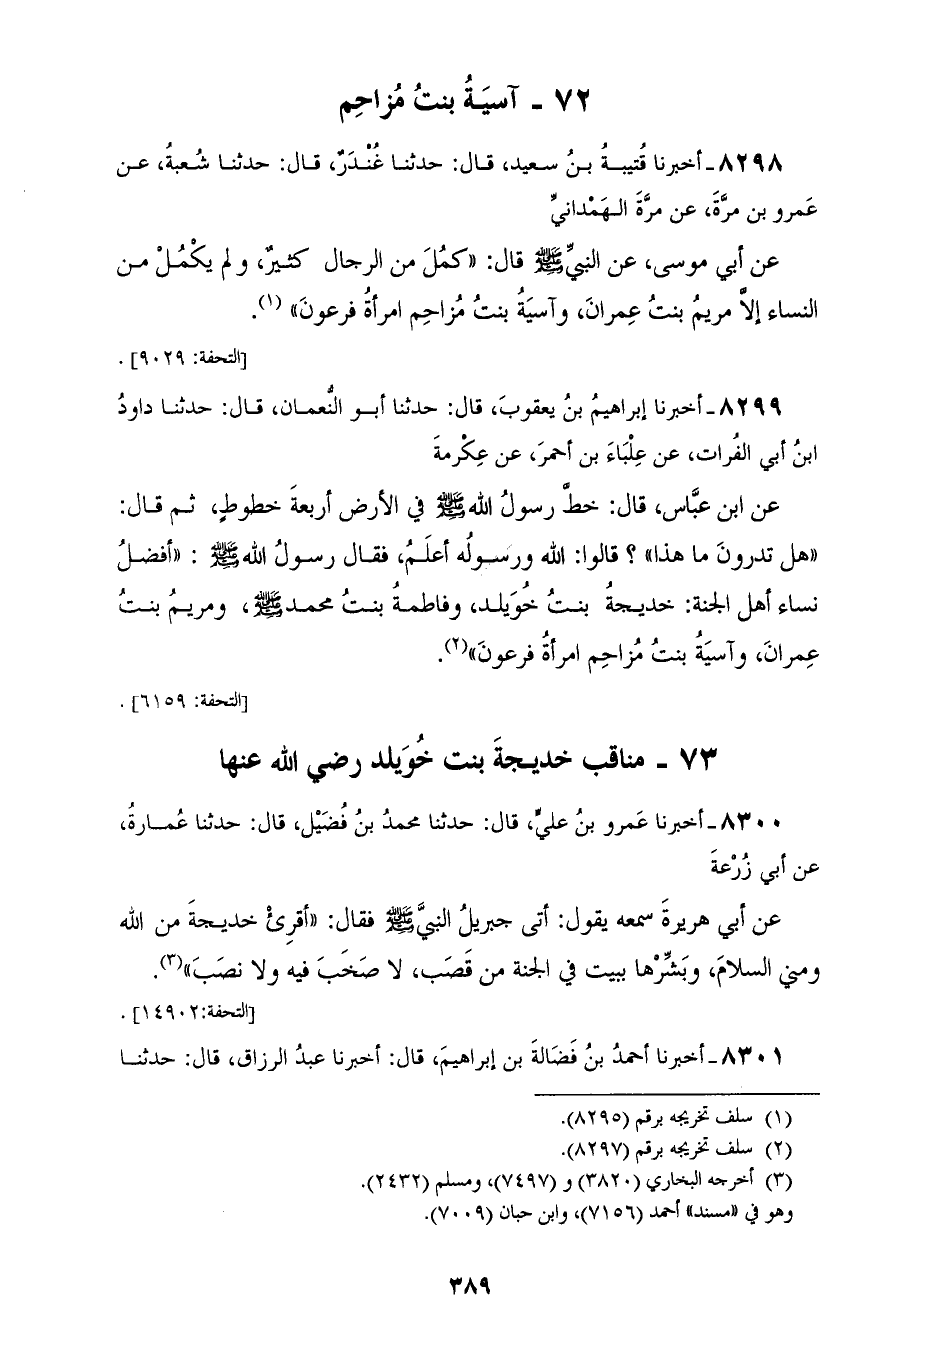 ٧٢ - آسيَةُ بنتُ مُزاحِم
٨٢٩٨ـ أخبرنا قُتيبةُ بنُ سعيد، قال: حدثنا غُنْدَرٌ، قال: حدثنا شُعبةُ، عن
عَمرو بن مرَّةَ، عن مرَّةَ الهَمْدانيِّ
عن أبي موسى، عن النبيِّ ﷺ قال: «كمُلَ من الرجال كثيرٌ، ولم يكْمُلْ من
النساء إلاَّ مريمُ بنتُ عِمرانَ، وآسيَةُ بنتُ مُزاحِم امرأةُ فرعونَ» (١).
[التحفة: ٩٠٢٩] .
٨٢٩٩ـ أخبرنا إبراهيمُ بنُ يعقوبَ، قال: حدثنا أبو النُّعمان، قال: حدثنا داودُ
ابنُ أبي الفُرات، عن عِلْبَاءَ بن أحمرَ، عن عِكْرمةَ
عن ابن عبَّاس، قال: خطَّ رسولُ الله ﷺ في الأرض أربعةَ خطوطٍ، ثم قال:
«هل تدرونَ ما هذا» ؟ قالوا: الله ورسولُه أعلَمُ، فقال رسولُ الله ﷺ : «أفضلُ
نساء أهل الجنة: خديجةُ بنتُ خُوَيلد، وفاطمةُ بنتُ محمد ﷺ، ومريمُ بنتُ
عِمرانَ، وآسيَةُ بنتُ مُزاحِم امرأةُ فرعونَ»(٢).
[التحفة: ٦١٥٩] .
٧٣ - مناقب خديجةَ بنت خُوَيلد رضي الله عنها
٨٣٠٠ـ أخبرنا عَمرو بنُ عليٍّ، قال: حدثنا محمدُ بنُ فُضَيْل، قال: حدثنا عُمارةُ،
عن أبي زُرْعةَ
عن أبي هريرةَ سمعه يقول: أتى جبريلُ النبيَّ ﷺ فقال: «أقرِئْ خديجةَ من الله
ومني السلامَ، وبَشِّرْها ببيت في الجنة من قَصَب، لا صَخَبَ فيه ولا نصَبَ»(٣).
[التحفة:١٤٩٠٢] .
٨٣٠١ـ أخبرنا أحمدُ بنُ فَضَالةَ بن إبراهيمَ، قال: أخبرنا عبدُ الرزاق، قال: حدثنا
(١) سلف تخريجه برقم (٨٢٩٥).
(٢) سلف تخريجه برقم (٨٢٩٧).
(٣) أخرجه البخاري (٣٨٢٠) و (٧٤٩٧)، ومسلم (٢٤٣٢).
وهو في «مسند» أحمد (٧١٥٦)، وابن حبان (٧٠٠٩).
٣٨٩